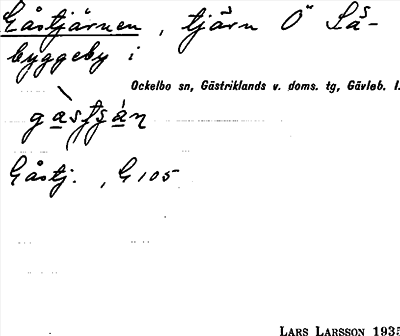 Gåstjärnen, tjärn Ö Lås-
byggeby i
Ockelbo sn, Gästriklands v. doms. tg, Gävleb. l.
Gåstj. , G 105
LARS LARSSON 1935